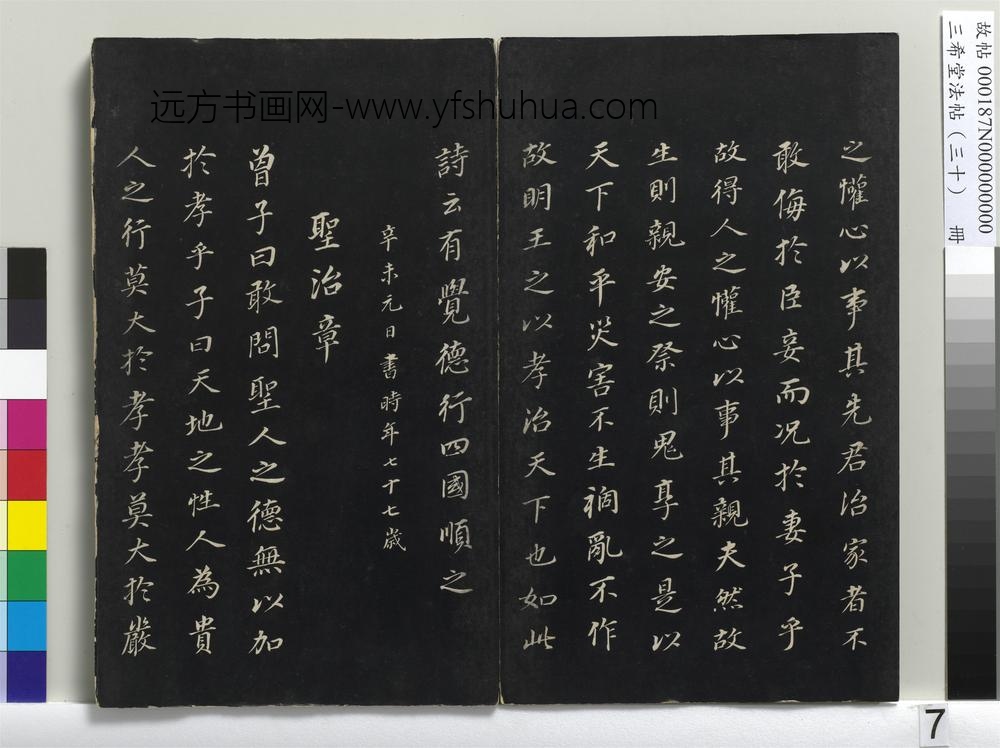 之懽心以事其先君治家者不
敢侮扵臣妾而况扵妻子乎
故得人之懽心以事其親夫然故
生則親安之祭則鬼享之是以
天下和平災害不生禍亂不作
故明王之以孝治天下也如此
詩云有覺德行四國順之
辛未元日書時年七十七歲
聖治章
曾子曰敢問聖人之德無以加
扵孝乎子曰天地之性人為貴
人之行莫大扵孝孝莫大扵嚴
远方书画网-www.yfshuhua.com
故帖 000187N000000000
三希堂法帖（三十） 冊
7